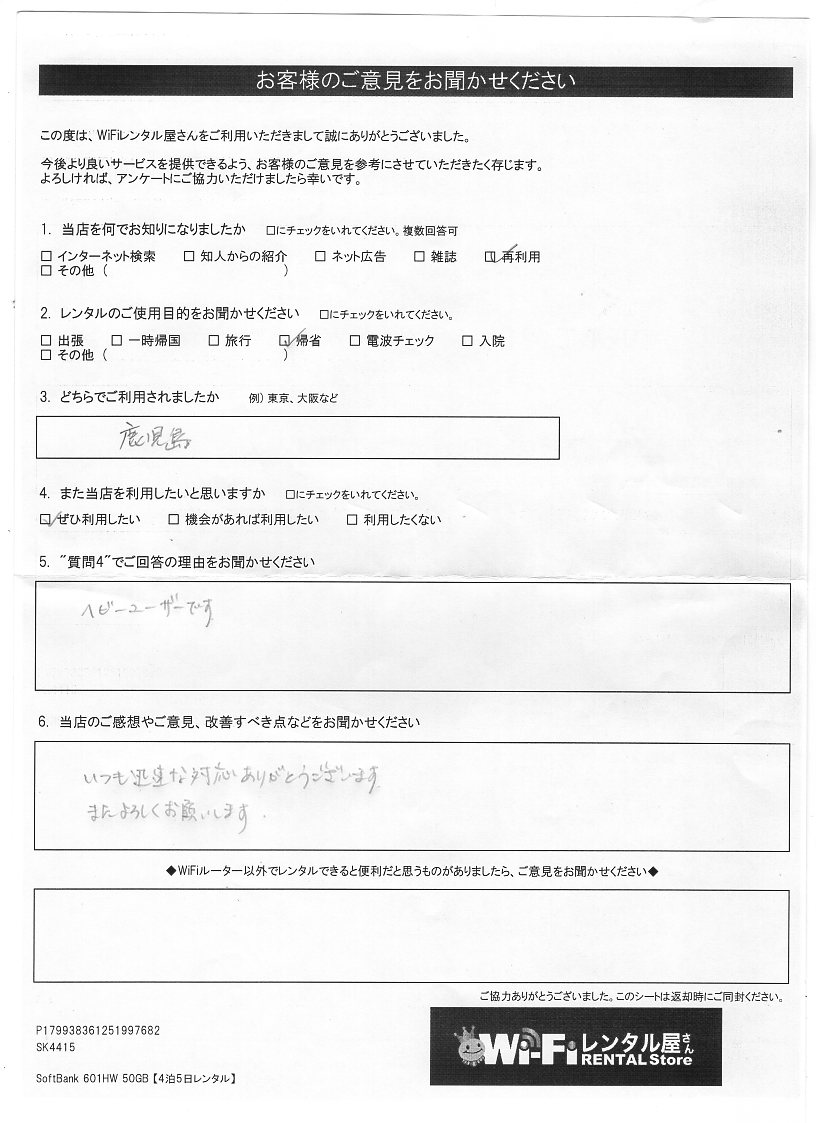 お客様のご意見をお聞かせください
この度は、WiFiレンタル屋さんをご利用いただきまして誠にありがとうございました。
今後より良いサービスを提供できるよう、お客様のご意見を参考にさせていただきたく存じます。
よろしければ、アンケートにご協力いただけましたら幸いです。
1. 当店を何でお知りになりましたか □にチェックをいれてください。複数回答可
□ インターネット検索 □ 知人からの紹介 □ ネット広告 □ 雑誌 ☑ 再利用
□ その他 ( )
2. レンタルのご使用目的をお聞かせください □にチェックをいれてください。
□ 出張 □ 一時帰国 □ 旅行 ☑ 帰省 □ 電波チェック □ 入院
□ その他 ( )
3. どちらでご利用されましたか 例) 東京、大阪など
鹿児島
4. また当店を利用したいと思いますか □にチェックをいれてください。
☑ ぜひ利用したい □ 機会があれば利用したい □ 利用したくない
5. "質問4"でご回答の理由をお聞かせください
ヘビーユーザーです
6. 当店のご感想やご意見、改善すべき点などをお聞かせください
いつも迅速な対応ありがとうございます
またよろしくお願いします.
◆WiFiルーター以外でレンタルできると便利だと思うものがありましたら、ご意見をお聞かせください◆
ご協力ありがとうございました。このシートは返却時にご同封ください。
P179938361251997682
SK4415
SoftBank 601HW 50GB【4泊5日レンタル】
Wi-Fiレンタル屋さん
RENTAL Store